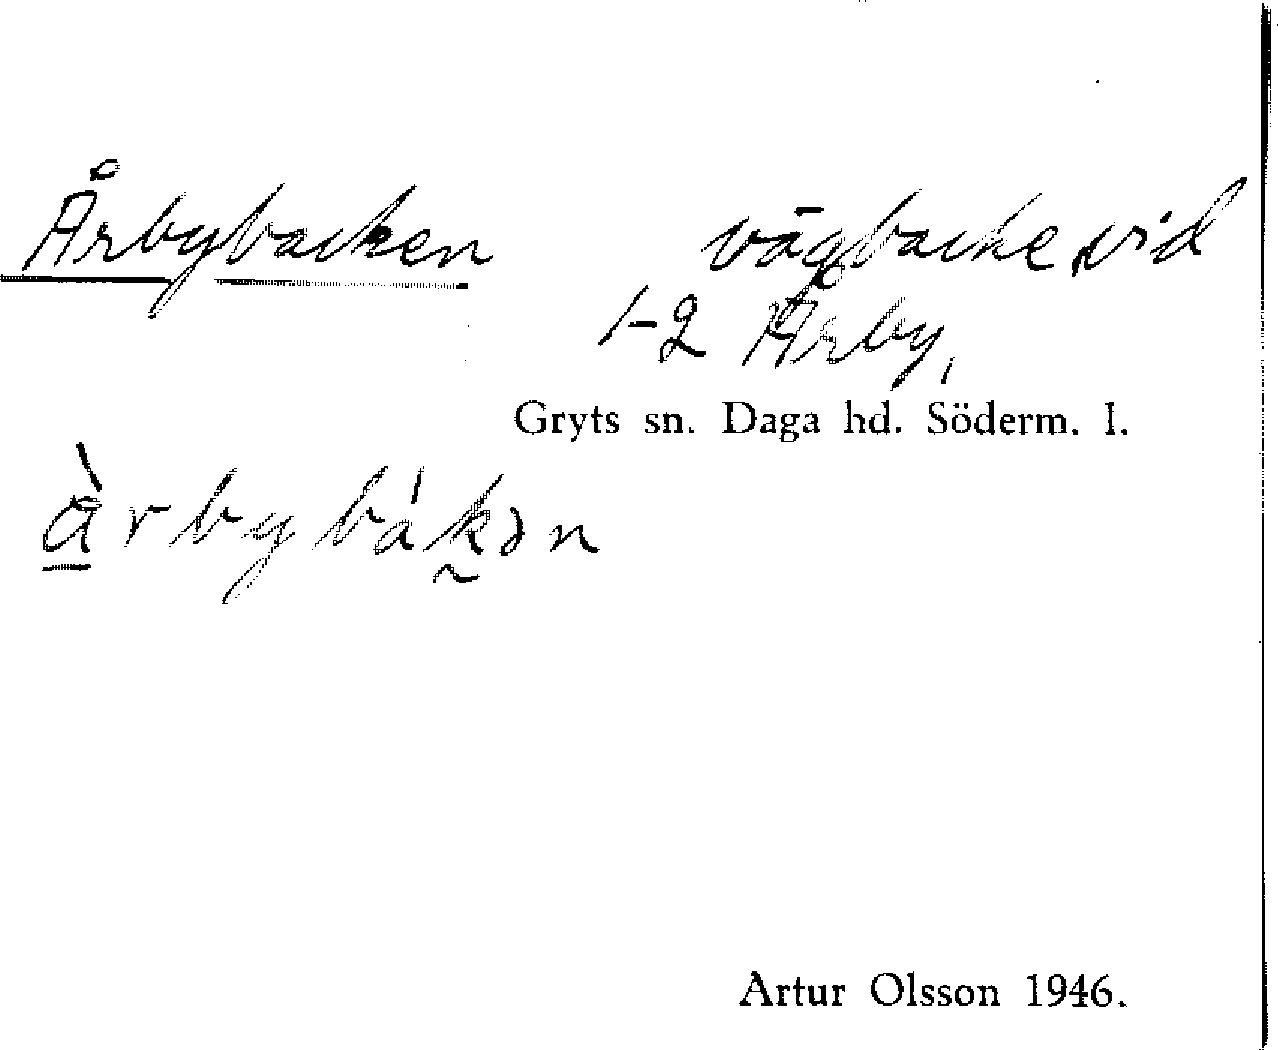 Årbybacken vägbacke, vid
1-2 Årby,
Gryts sn. Daga hd. Söderm. l.
àrbybákən
Artur Olsson 1946.